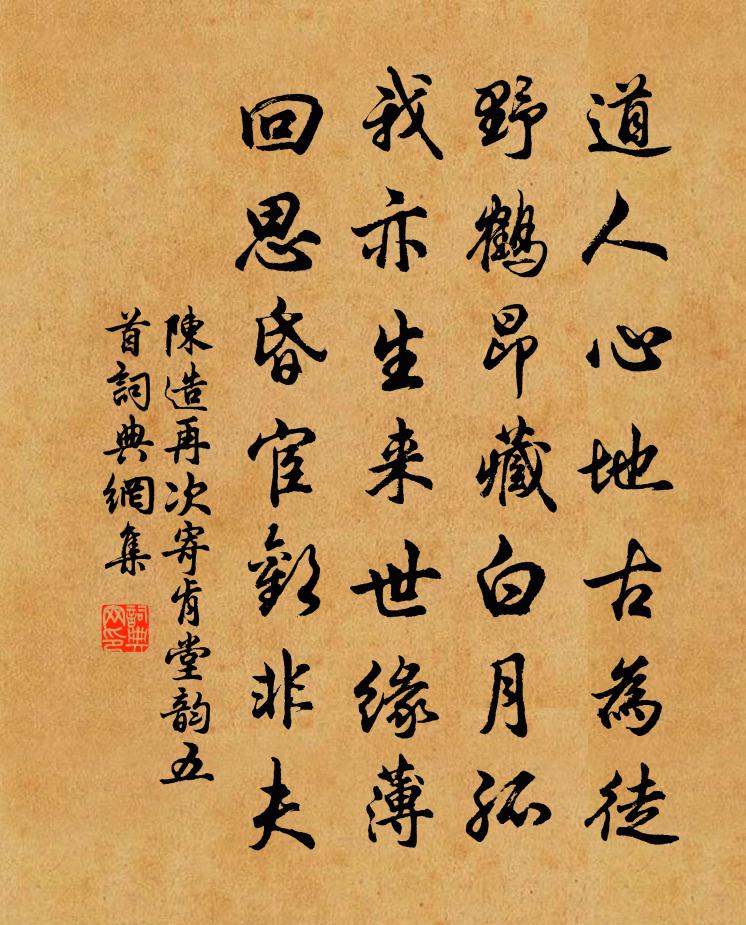 道人心地古為徒
野鶴昂藏白月孤
我亦生来世緣薄
回思昏宦歎非夫
陳造再次寄肯堂韵五
首詞典網集
詞典網印